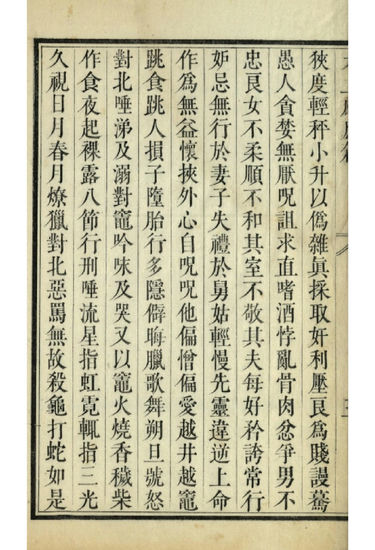 狹度輕秤小升以僞雜眞採取奸利壓良爲賤謾驀
愚人貪婪無厭呪詛求直嗜酒悖亂骨肉忿爭男不
忠良女不柔順不和其室不敬其夫每好矜誇常行
妒忌無行於妻子失禮於舅姑輕慢先靈違逆上命
作爲無益懷挾外心自呪呪他偏憎偏愛越井越竈
跳食跳人損子墮胎行多隱僻晦臘歌舞朔旦號怒
對北唾涕及溺對竈吟咏及哭又以竈火燒香穢柴
作食夜起裸露八節行刑唾流星指虹霓輒指三光
久視日月春月燎獵對北惡罵無故殺龜打蛇如是